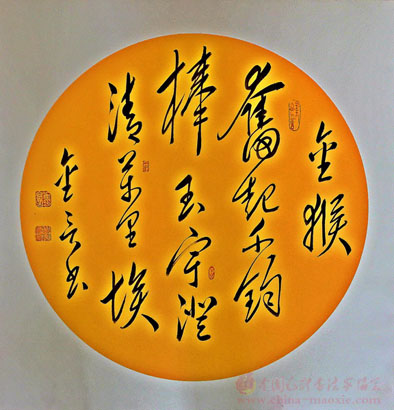 金猴
奮起千钧
棒玉宇澄
清萬里埃
金言书
www.china-maoxie.com